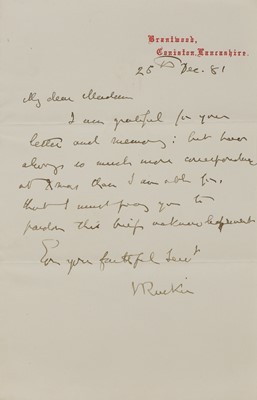 Brantwood,
Coniston, Lancashire.
25th Dec. 81
My dear Madam
I am grateful for your
letter and memory; but have
always so much more correspondence
at Xmas than I am able for,
that I must pray you to
pardon this brief acknowledgement
Ever your faithful Servt
J Ruskin